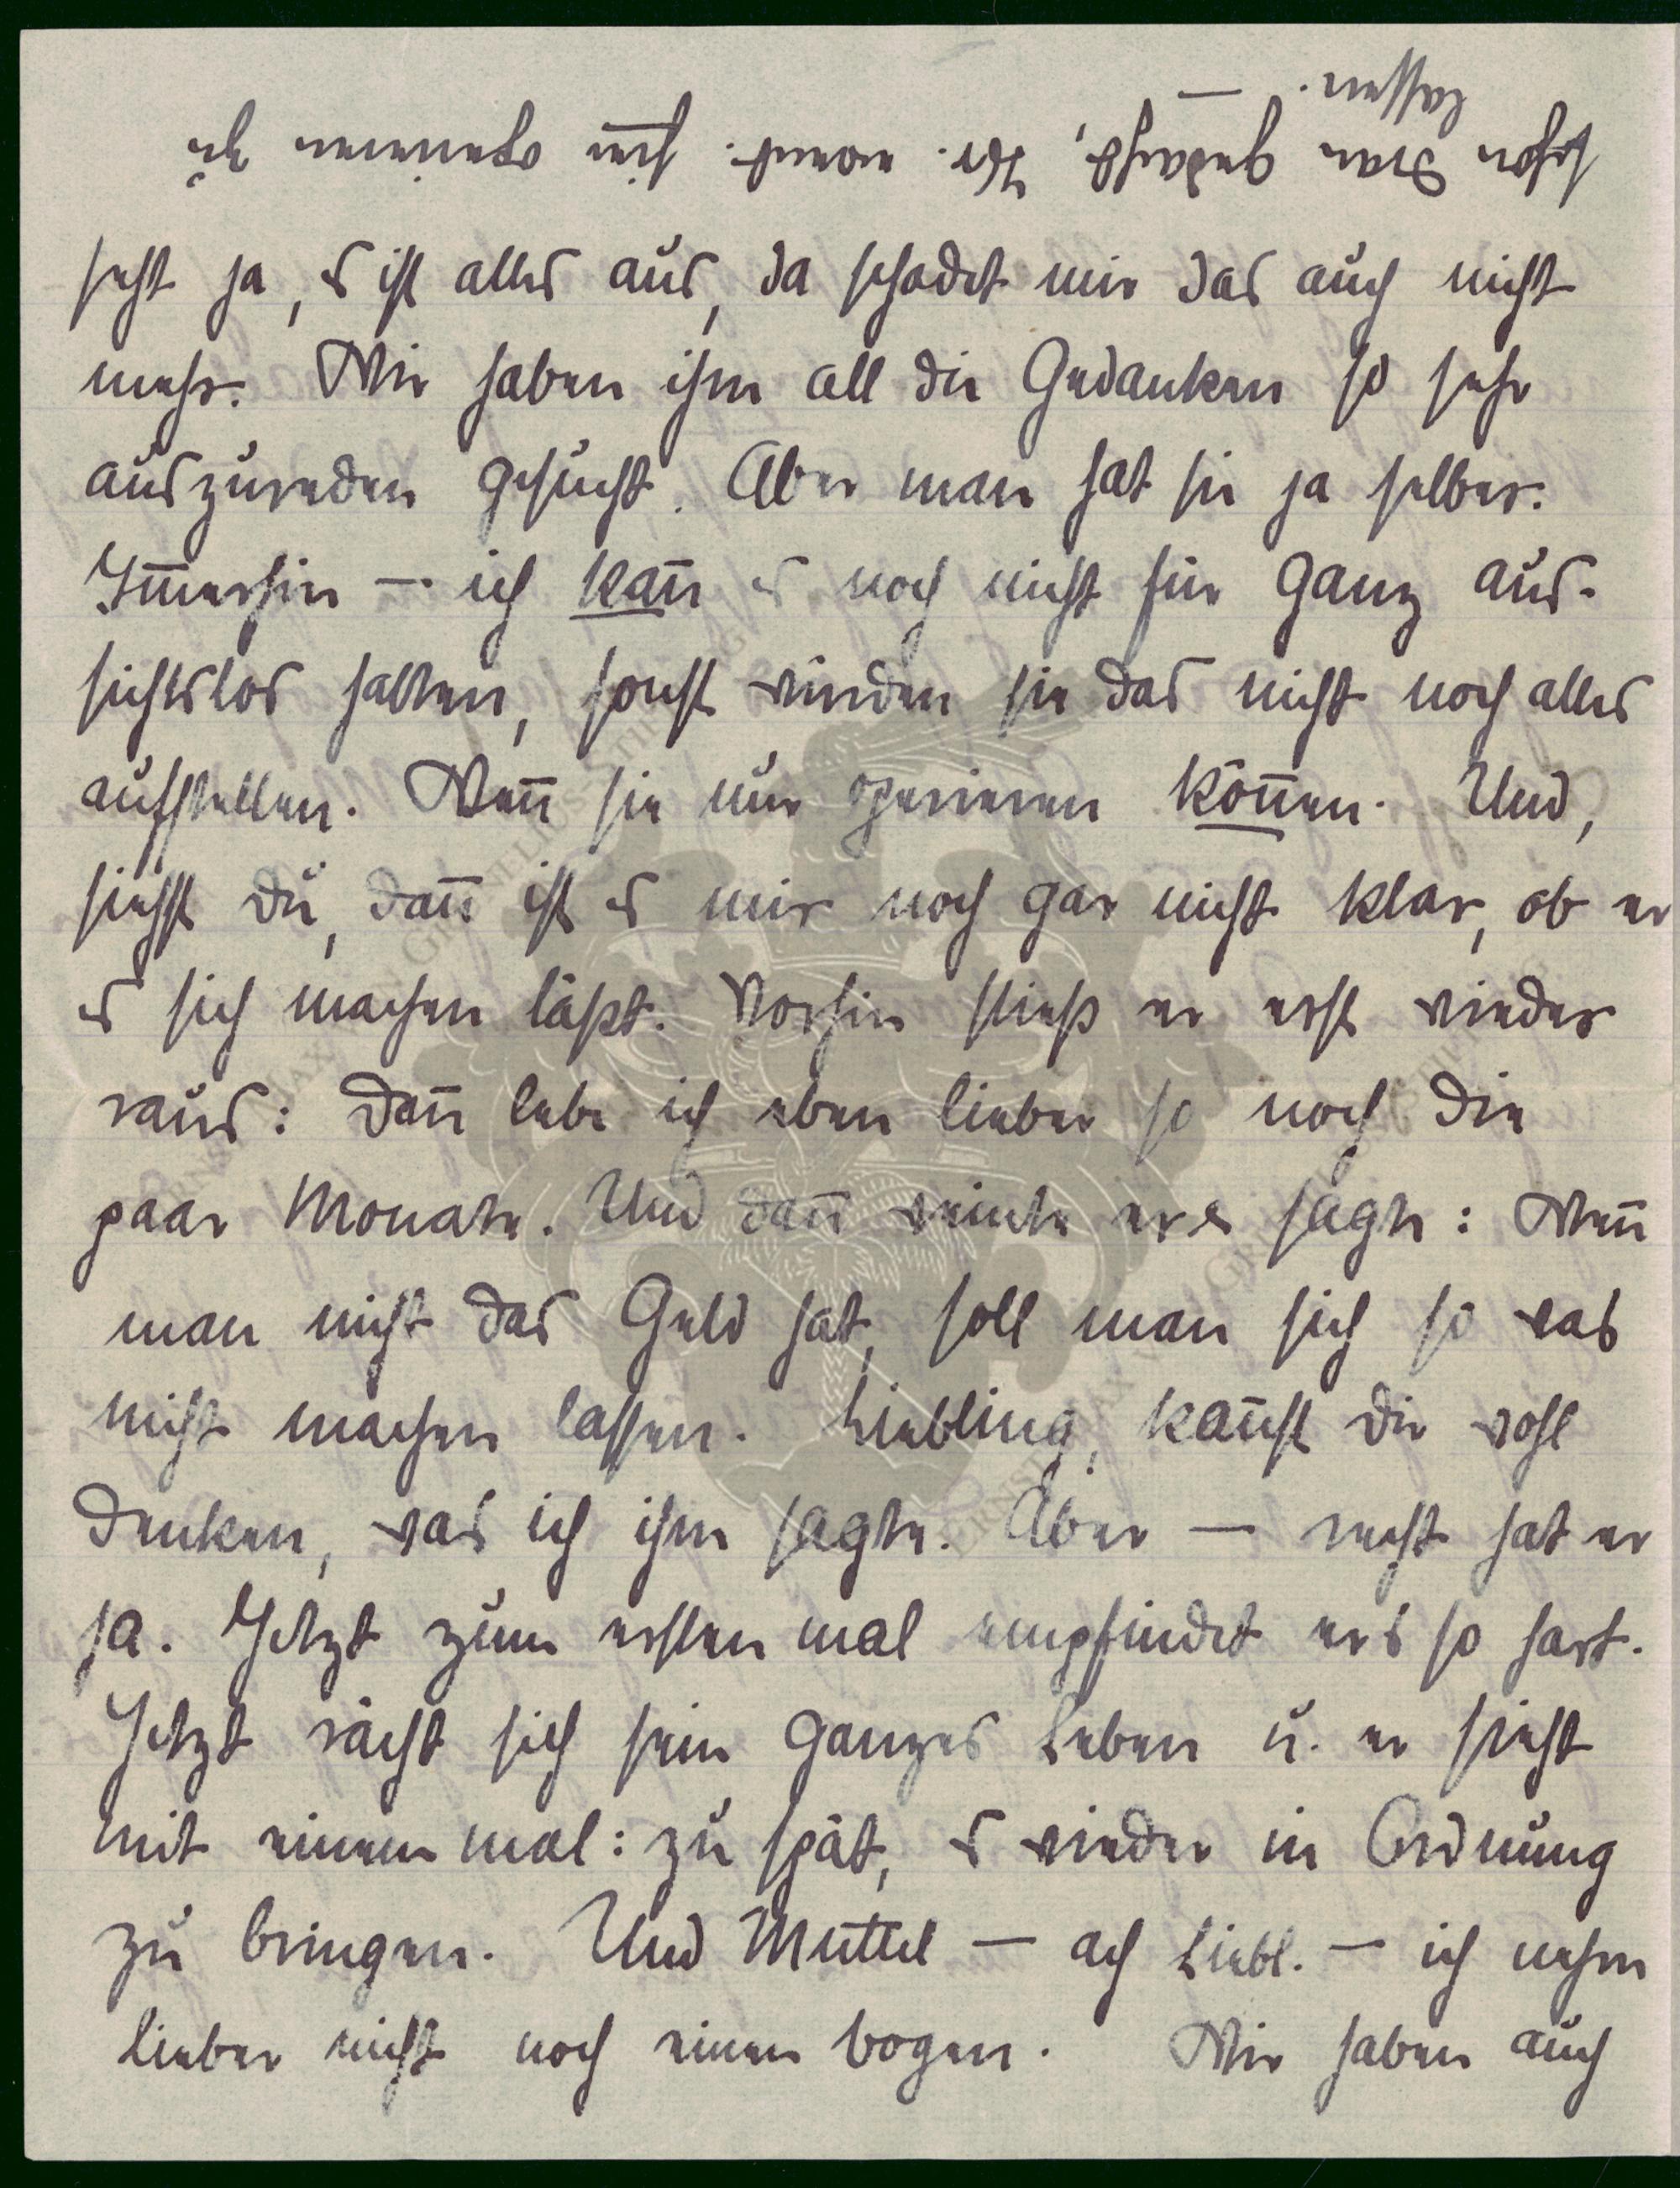 seht ja, es ist alles aus, da schadet mir das auch nicht
mehr. Wir haben ihm all die Gedanken so sehr
auszureden gesucht. Aber man hat sie ja selber.
Im̅erhin — ich kan̅ es noch nicht für ganz aus-
sichtslos halten, sonst würden sie das nicht noch alles
aufstellen. Wen̅ sie nur operieren kön̅en. Und,
siehst du, dan̅ ist es mir noch gar nicht klar, ob er
es sich machen läßt. Vorhin stieß er erst wieder
raus: Dan̅ lebe ich eben lieber so noch die
paar Monate. Und dan̅ weinte er & sagte: Wen̅
man nicht das Geld hat, soll man sich so was
nicht machen lassen. Liebling, kan̅st dir wohl
denken, was ich ihm sagte. Aber — recht hat er
ja. Jetzt zum ersten mal empfindet ers so hart.
Jetzt rächt sich sein ganzes Leben u. er sieht
mit einem mal: zu spät, es wieder in Ordnung
zu bringen. Und Muttel — ach Liebl. — ich nehm
lieber nicht noch einen bogen. Wir haben auch
schon dran gedacht, ihn operieren zu
lassen. —